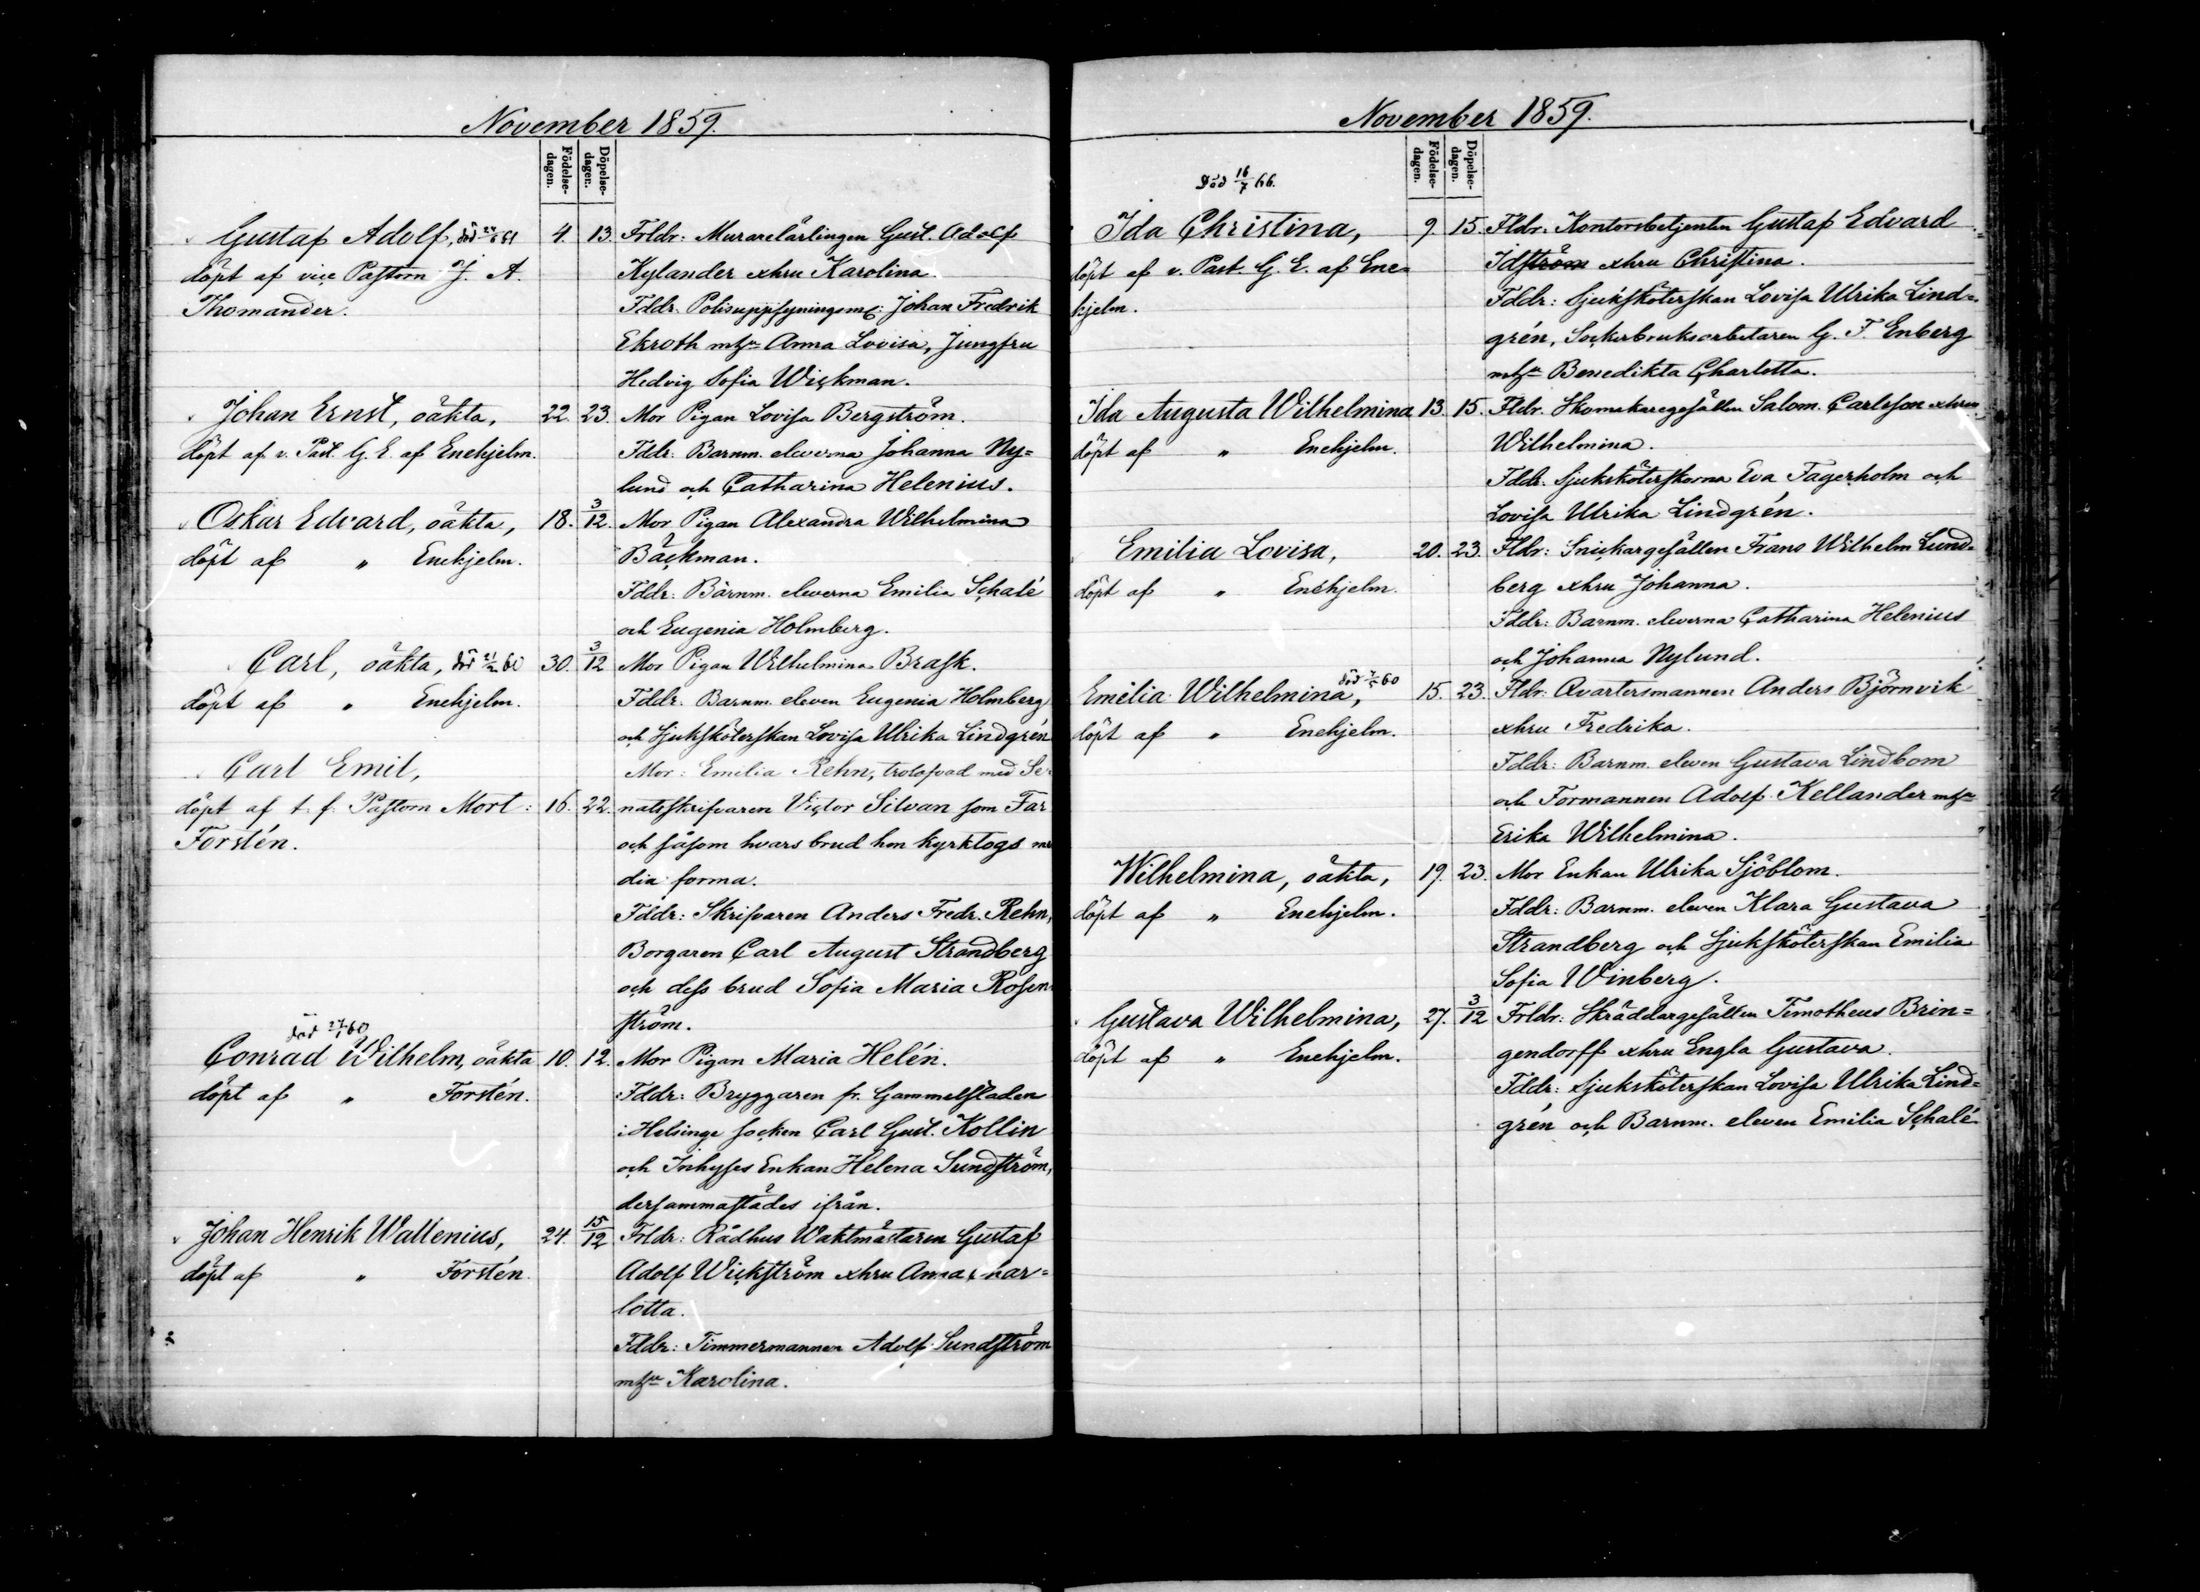 November 1859.
Födelse-dagen.
Döpelse-dagen.
Gustaf Adolf,
döpt af vice Pastorn J. A.
Thomander.
4. 13. Frldr: Murarelärlingen Gust. Adolf
Kylander xhru Karolina.
Fddr: Polisuppsyningsm: Johan Fredrik
Ekroth mhu Anna Lovisa, Jungfru
Hedvig Sofia Wickman.
Johan Ernst, oäkta,
döpt af v. Past. G. E. af Enehjelm.
22. 23. Mor Pigan Lovisa Bergström.
Fddr: Barnm. eleverna Johanna Ny=
lund och Catharina Helenius.
Oskar Edvard, oäkta,
döpt af " Enehjelm.
18. 3/12. Mor Pigan Alexandra Wilhelmina
Bäckman.
Fddr: Barnm. eleverna Emilia Schalé
och Eugenia Holmberg.
Carl, oäkta, död 60
döpt af " Enehjelm.
30. 3/12 Mor Pigan Wilhelmina Brask.
Fddr: Barnm. eleven Eugenia Holmberg
och Sjuksköterskan Lovisa Ulrika Lindgrén
Carl Emil,
döpt af t. f. Pastorn Mort:
Forstén.
16. 22. Mor: Emilia Rehn, trolofvad med Se-
natsskrifvaren Victor Silvan som Far
och såsom hvars brud hon kyrktogs me
dia forma.
Fddr: Skrifvaren Anders Fredr. Rehn,
Borgaren Carl August Strandberg
och dess brud Sofia Maria Rosen
ström.
död 60
Conrad Wilhelm, oäkta
döpt af " Forstén.
10. 12. Mor Pigan Maria Helén.
Fddr: Bryggaren fr. Gammelstaden
i Helsinge socken Carl Gust. Kollin
och Inhyses Enkan Helena Sundström,
dersammastädes ifrån.
Johan Henrik Wallenius,
döpt af " Forstén.
24. 15/12 Frldr: Rådhus Waktmästaren Gustaf
Adolf Wickström xhru Anna Char=
lotta.
Fddr: Timmermannen Adolf Sundström
mhu Karolina.
November 1859.
Födelse-dagen.
Döpelse-dagen.
Död 16/7 66.
Ida Christina,
döpt af v. Past. G. E. af Ene=
hjelm.
9. 15. Fldr: Kontorsbetjenten Gustaf Edvard
Idström xhru Christina.
Fddr: Sjuksköterskan Lovisa Ulrika Lind=
grén, Sockerbruksarbetaren G. F. Enberg
mhu Benedikta Charlotta.
Ida Augusta Wilhelmina
döpt af " Enehjelm.
13. 15. Fldr. Skomakaregesällen Salom. Carlsson xhru
Wilhelmina.
Fddr. Sjuksköterskorna Eva Fagerholm och
Lovisa Ulrika Lindgrén.
Emilia Lovisa,
döpt af " Enehjelm.
20. 23. Fldr: Snickargesällen Frans Wilhelm Lund=
berg xhru Johanna.
Fddr: Barnm. eleverna Catharina Helenius
och Johanna Nylund.
död 60
Emilia Wilhelmina,
döpt af " Enehjelm.
15. 23. Fldr: Qvartersmannen Anders Björnvik
xhru Fredrika.
Fddr: Barnm. eleven Gustava Lindbom
och Formannen Adolf Kellander mhu
Erika Wilhelmina.
Wilhelmina, oäkta,
döpt af " Enehjelm.
19. 23. Mor Enkan Ulrika Sjöblom.
Fddr: Barnm. eleven Klara Gustava
Strandberg och Sjuksköterskan Emilia
Sofia Winberg.
Gustava Wilhelmina,
döpt af " Enehjelm.
27. 3/12 Frldr: Skräddargesällen Timotheus Brin=
gendorff xhru Engla Gustava.
Fddr: Sjuksköterskan Lovisa Ulrika Lind=
grén och Barnm. eleven Emilia Schalé